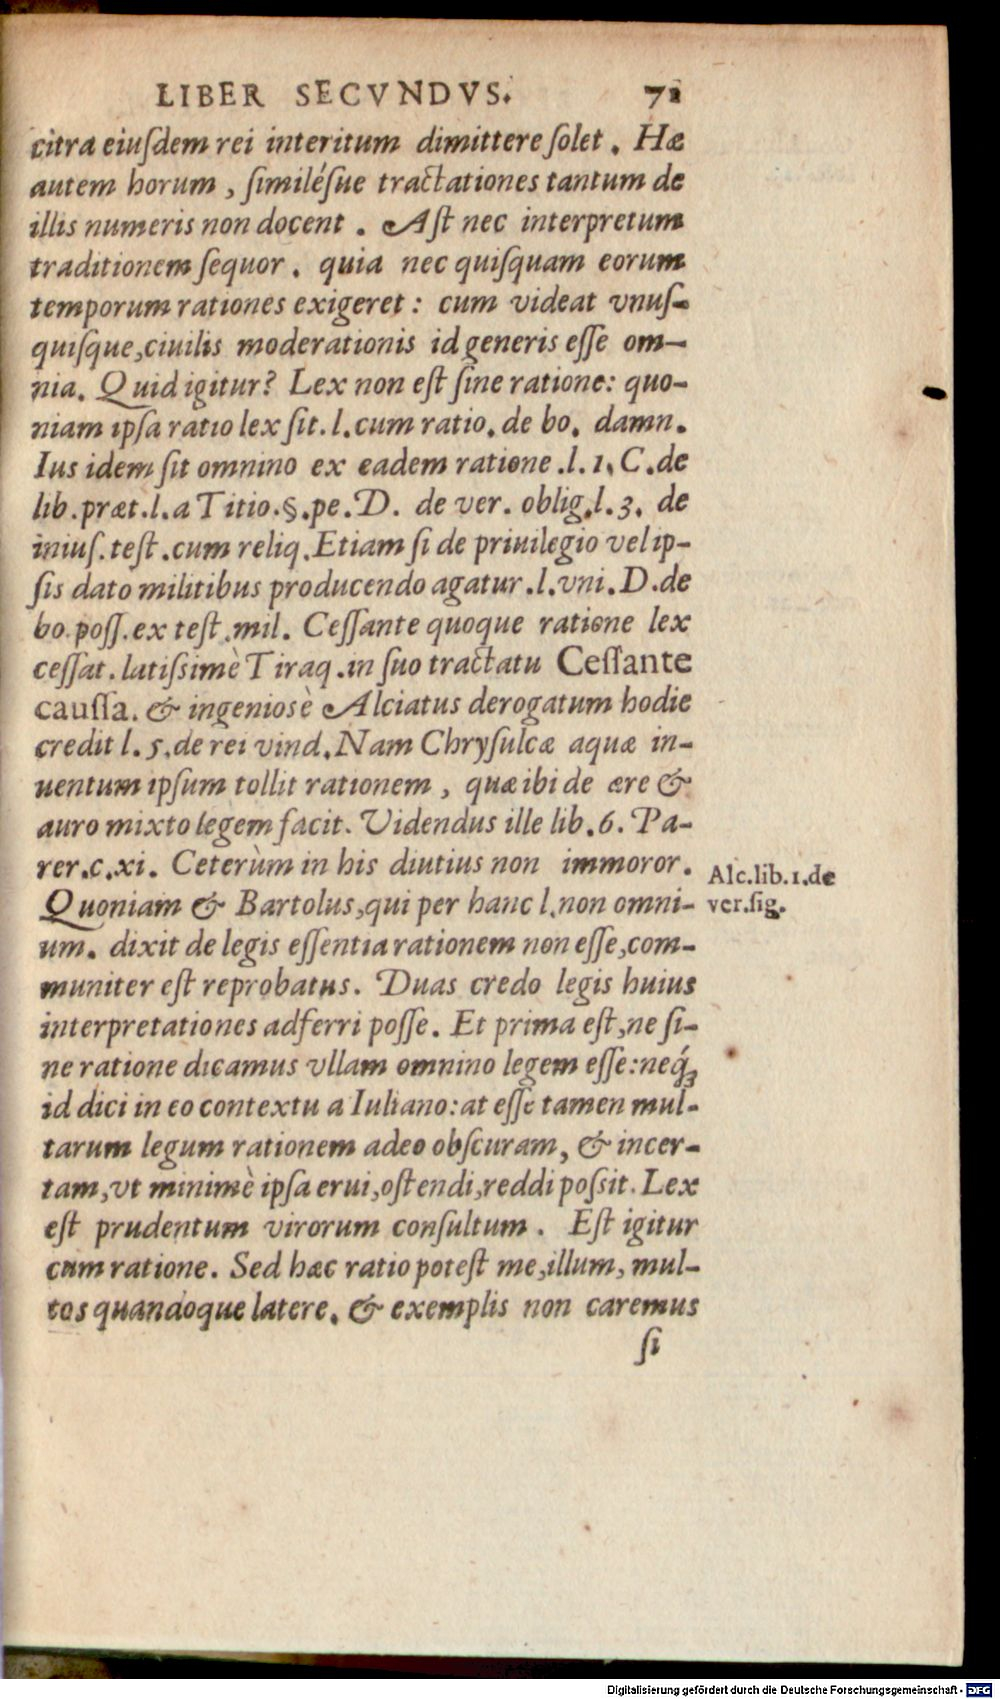 LIBER SECVNDVS. 71
citra eiuſdem rei interitum dimittere ſolet. Hæ
autem horum, ſimiléſue tractationes tantum de
illis numeris non docent. Aſt nec interpretum
traditionem ſequor. quia nec quiſquam eorum
temporum rationes exigeret: cum videat vnuſ-
quiſque, ciuilis moderationis id generis eſſe om-
nia. Quid igitur? Lex non eſt ſine ratione: quo-
niam ipſa ratio lex ſit. l. cum ratio. de bo. damn.
Ius idem ſit omnino ex eadem ratione. l. 1. C. de
lib. præt. l. a Titio. §. pe. D. de ver. oblig. l. 3. de
iniuſ. teſt. cum reliq. Etiam ſi de priuilegio vel ip-
ſis dato militibus producendo agatur. l. vni. D. de
bo. poſſ. ex teſt. mil. Ceſſante quoque ratione lex
ceſſat. latiſsimè Tiraq. in ſuo tractatu Ceſſante
cauſſa. & ingeniosè Alciatus derogatum hodie
credit l. 5. de rei vind. Nam Chryſulcæ aquæ in-
uentum ipſum tollit rationem, quæ ibi de ære &
auro mixto legem facit. Videndus ille lib. 6. Pa-
rer. c. xi. Ceterùm in his diutius non immoror.
Quoniam & Bartolus, qui per hanc l. non omni-
um. dixit de legis eſſentia rationem non eſſe, com-
muniter eſt reprobatus. Duas credo legis huius
interpretationes adferri poſſe. Et prima eſt, ne ſi-
ne ratione dicamus vllam omnino legem eſſe: neq́;
id dici in eo contextu a Iuliano: at eſſe tamen mul-
tarum legum rationem adeo obſcuram, & incer-
tam, vt minimè ipſa erui, oſtendi, reddi poſsit. Lex
eſt prudentum virorum conſultum. Eſt igitur
cum ratione. Sed hæc ratio poteſt me, illum, mul-
tos quandoque latere. & exemplis non caremus
ſi
Alc. lib. 1. de
ver. ſig.
Digitalisierung gefördert durch die Deutsche Forschungsgemeinschaft - DFG